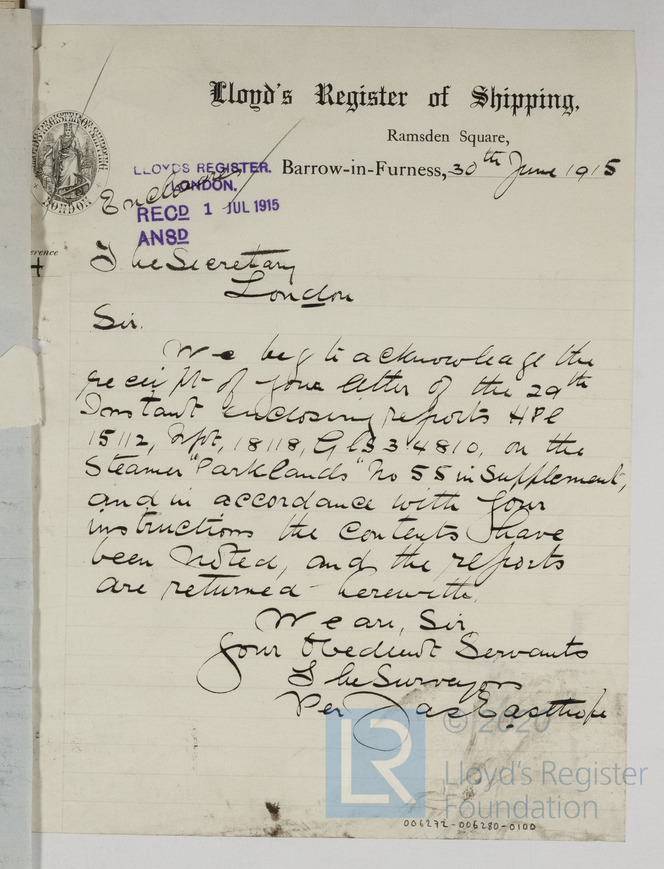 Lloyd's Register of Shipping,
Ramsden Square,
Barrow-in-Furness, 30th June 1915
LLOYDS REGISTER.
LONDON.
RECD 1 JUL 1915
ANSD
Enclosures
The Secretary
London
Sir.
We beg to acknowledge the
receipt of your letter of the 29th
Instant enclosing reports HPL
15112, Npt, 18118, Gls 34810, on the
Steamer "Parklands" No 55 in Supplement,
and in accordance with your
instructions the contents have
been noted, and the reports
are returned herewith.
We are, Sir
Your Obedient Servants
The Surveyors
Per Jas Easthope
© 2020
Lloyd's Register
Foundation
LR
006272-006280-0100